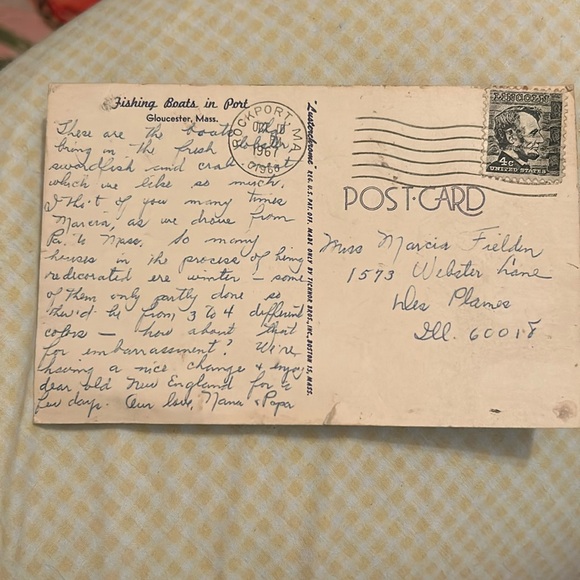 Fishing Boats in Port
Gloucester, Mass.
These are the boats that
bring in the fresh lobster,
swordfish and crab meat
which we like so much.
I tho't of you many times
Marcia, as we drove from
Pa. to Mass. So many
houses in the process of being
redecorated ere winter — some
of them only partly done so
they'd be from 3 to 4 different
colors — how about that
for embarrassment? We're
having a nice change & enjoy
dear old New England for a
few days. Our love, Nana & Papa
"Lusterchrome" REG. U.S. PAT. OFF. MADE ONLY BY TICHNOR BROS., INC., BOSTON 15, MASS.
ROCKPORT, MA
1967
01966
LINCOLN
4c
UNITED STATES
POST-CARD
Miss Marcia Fielden
1573 Webster Lane
Des Plaines
Ill. 60018